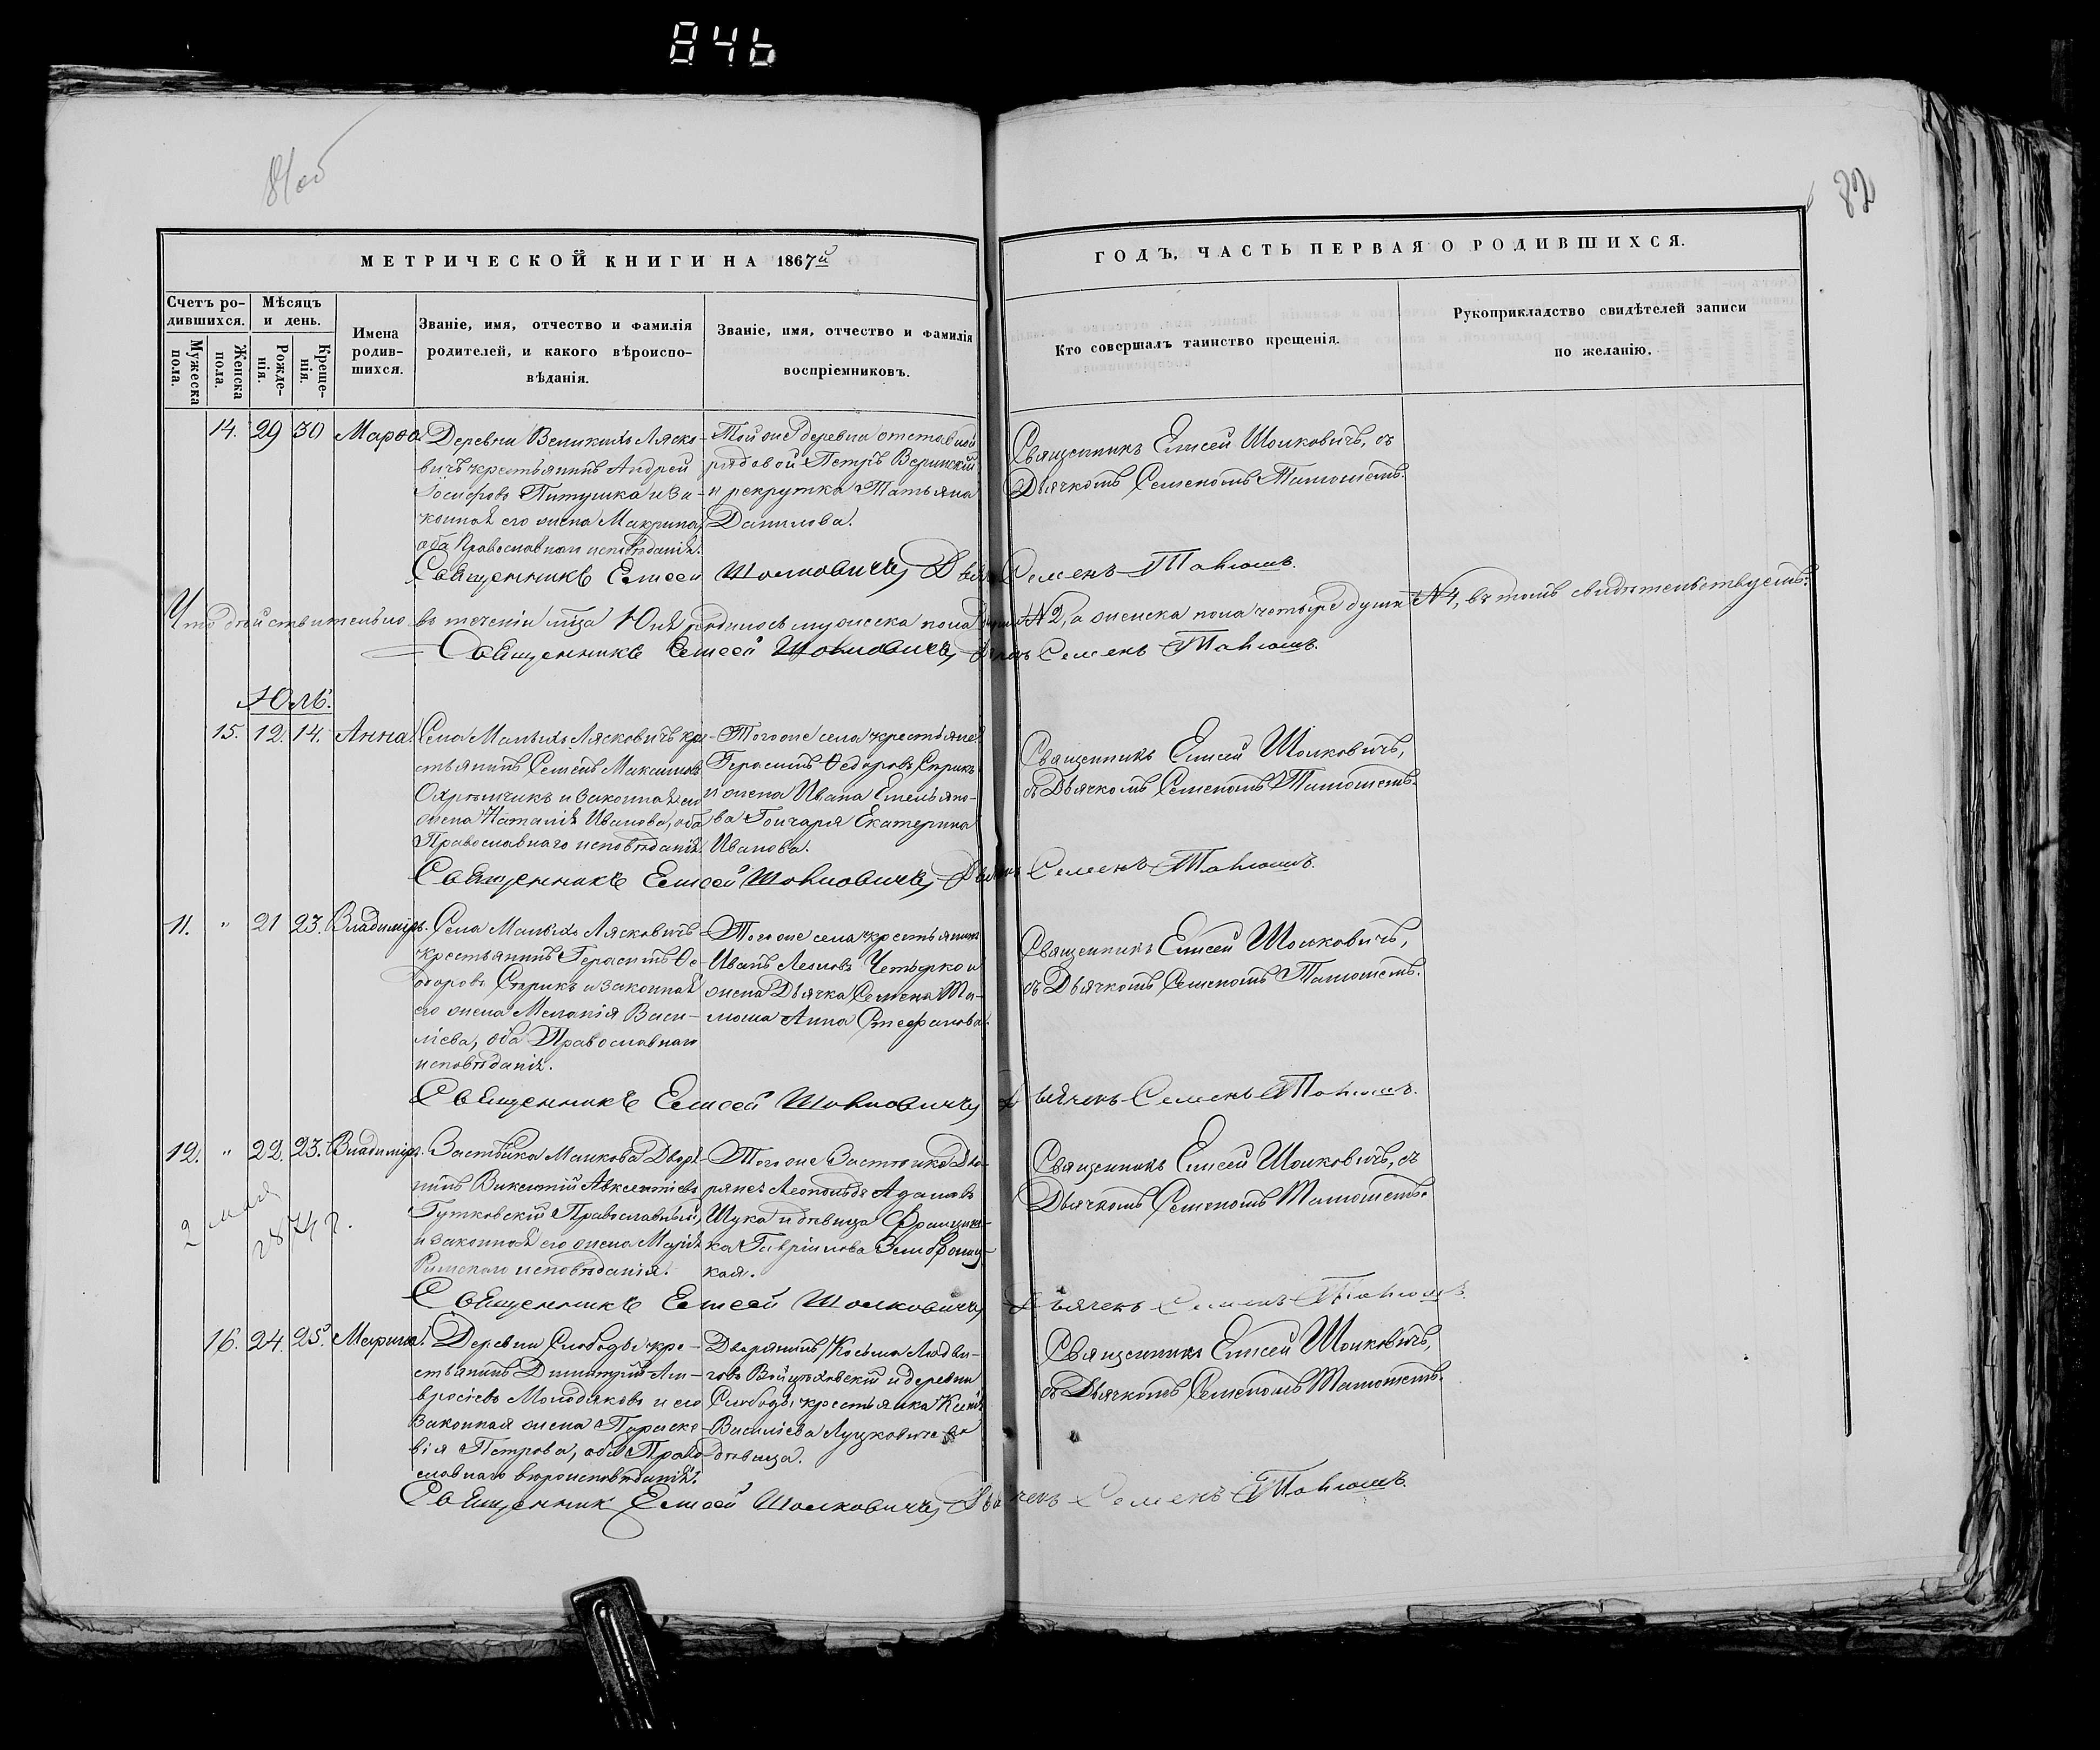 846
81об
82
МЕТРИЧЕСКОЙ КНИГИ НА 1867й
ГОДЪ, ЧАСТЬ ПЕРВАЯ О РОДИВШИХСЯ.
Счетъ ро-
дившихся.
Мужеска
пола.
Женска
пола.
Мѣсяцъ
и день.
Рожде-
нія.
Креще-
нія.
Имена
родив-
шихся.
Званіе, имя, отчество и фамилія
родителей, и какого вѣроиспо-
вѣданія.
Званіе, имя, отчество и фамилія
воспріемниковъ.
Кто совершалъ таинство крещенія.
Рукоприкладство свидѣтелей записи
по желанію.
14. 29 30 Марѳа
Деревни Великихъ Ляско-
вичъ крестьянинъ Андрей
Іосифовъ Питушка и за-
конная его жена Макрина,
оба Православнаго исповѣданія.
Той же деревни отставной
рядовой Петръ
и рекрутка Татьяна
Данилова.
Священникъ Елисей Шолковичъ, съ
Дьячкомъ Семеномъ
Священникъ Елисей Шолковичъ, Дьячекъ Семенъ
Что дѣйствительно въ теченіи мца Юня родилось мужеска пола души №2, а женска пола четыре души №4, въ томъ свидѣтельствуемъ:
Священникъ Елисей Шолковичъ, Дьячекъ Семенъ
Юль.
15. 12. 14. Анна.
Села Малыхъ Лясковичъ кре-
стьянинъ Семенъ Максимовъ
и законная его
жена Наталія Иванова, оба
Православнаго исповѣданія.
Того же села крестьяне
Герасимъ Ѳедоровъ
и жена Ивана Емельяно-
ва Гончара Екатерина
Иванова.
Священникъ Елисей Шолковичъ,
съ Дьячкомъ Семеномъ
Священникъ Елисей Шолковичъ, Дьячекъ Семенъ
11. " 21 23. Владиміръ.
Села Малыхъ Лясковичъ
крестьянинъ Герасимъ Ѳе-
доровъ и законная
его жена Меланія Васи-
ліева, оба Православнаго
исповѣданія.
Того же села крестьянинъ
Иванъ Леоновъ и
жена Дьячка Семена
Анна Стефанова.
Священникъ Елисей Шолковичъ,
съ Дьячкомъ Семеномъ
Священникъ Елисей Шолковичъ, Дьячекъ Семенъ
12. " 22. 23. Владиміръ.
2 мая
1874 г.
Застѣнка Дворя-
нинъ Викентій Авксентіевъ
Гутковскій Православный,
и законная его жена Марія
Римскаго исповѣданія.
Того же Застѣнка Дво-
рянез Леопольдъ Адамовъ
Щука и дѣвица Францишка
Гавріилова
кая.
Священникъ Елисей Шолковичъ, съ
Дьячкомъ Семеномъ
Священникъ Елисей Шолковичъ, Дьячекъ Семенъ
16. 24. 25. Марина.
Деревни Слободы кре-
стьянинъ Димитрій Ам-
вросіевъ и его
законная жена Параске-
вія Петрова, оба Право-
славнаго вѣроисповѣданія.
Дворянинъ Косьма Людви-
говъ Войцѣховскій и деревни
Слободы крестьянка Ксенія
Василіева
дѣвица.
Священникъ Елисей Шолковичъ,
съ Дьячкомъ Семеномъ
Священник Елисей Шолковичъ, Дьячекъ Семенъ